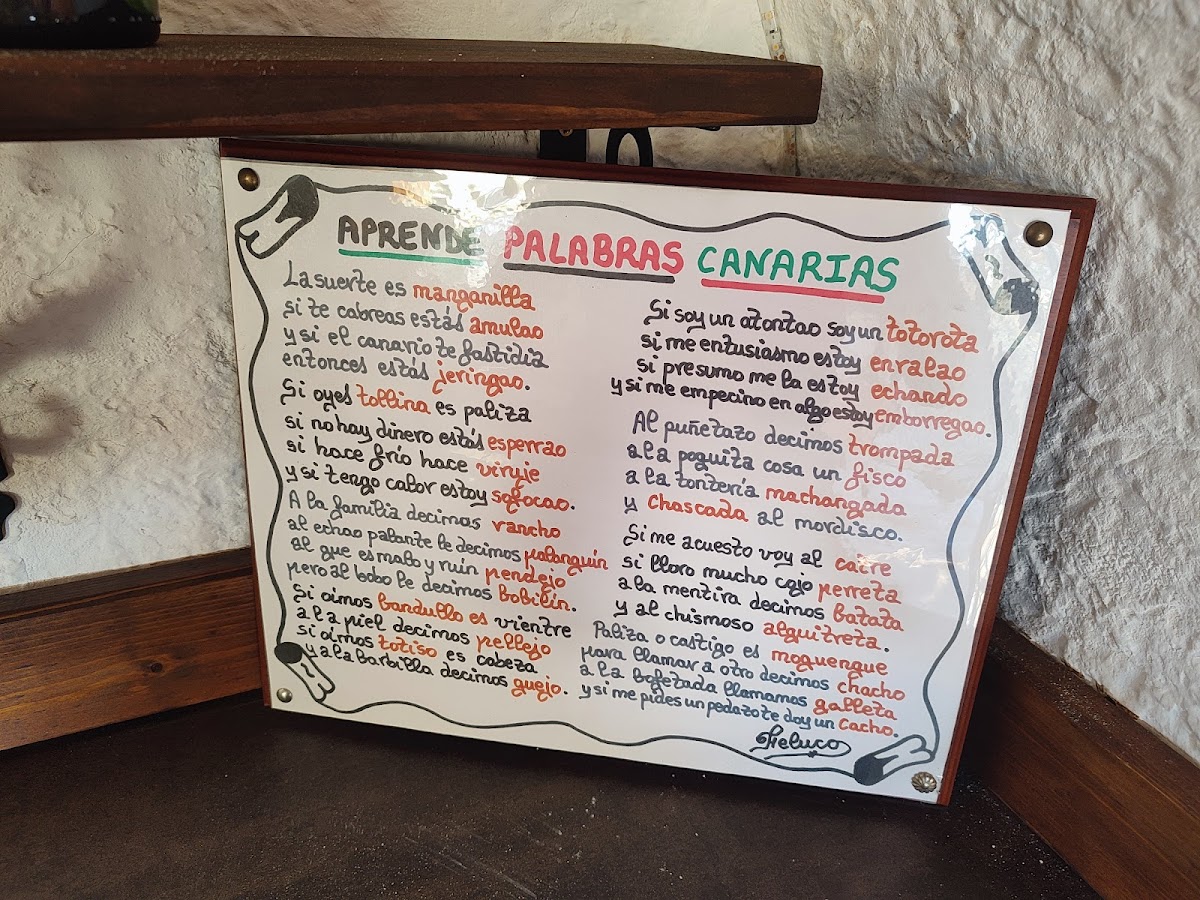 APRENDE PALABRAS CANARIAS
La suerte es manganilla
si te cabreas estás amulao
y si el canario te fastidia
entonces estás jeringao.
Si oyes tollina es paliza
si no hay dinero estás esperrao
si hace frío hace viruje
y si tengo calor estoy sofocao.
A la familia decimos vancho
al echao palante le decimos palanquín
al que es malo y ruin pendejo
pero al bobo le decimos Bobilín.
Si oimos bandullo es vientre
a la piel decimos pellejo
si oimos totiso es cabeza
y a la barbilla decimos guejo.
Si soy un atontao soy un totorota
si me entusiasmo estoy enralao
si presumo me la estoy echando
y si me empecino en algo estoy emborregao.
Al puñetazo decimos trompada
a la poquita cosa un fisco
a la tontería machangada
y Chascada al mordisco.
Si me acuesto voy al catre
si lloro mucho cojo perreta
a la mentira decimos batata
y al chismoso alguitreta.
Paliza o castigo es moquengue
para llamar a otro decimos chacho
a la bofetada llamamos galleta
y si me pides un pedazo te doy un cacho.